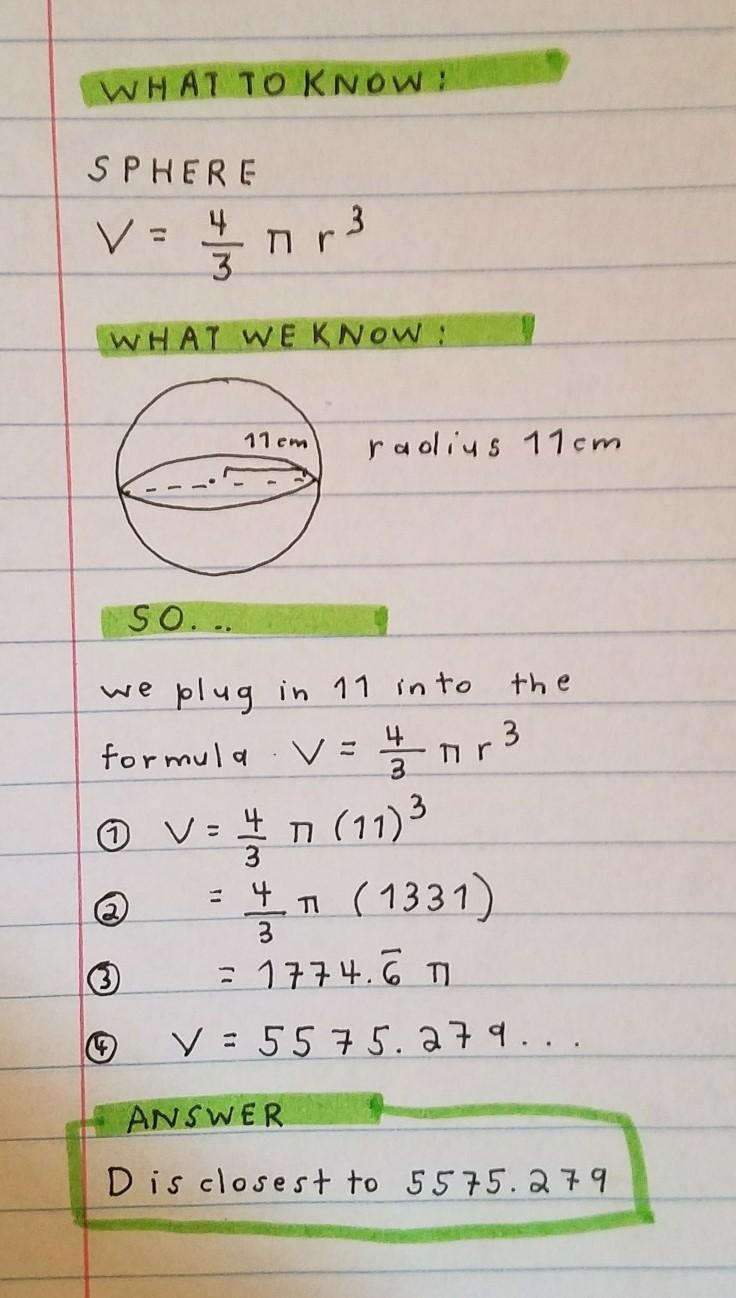 WHAT TO KNOW:
SPHERE
V = 4/3 π r³
WHAT WE KNOW:
11cm
radius 11cm
SO...
we plug in 11 into the
formula. V = 4/3 π r³
① V = 4/3 π (11)³
② = 4/3 π (1331)
③ = 1774.6̅ π
④ V = 5575.279...
ANSWER
D is closest to 5575.279